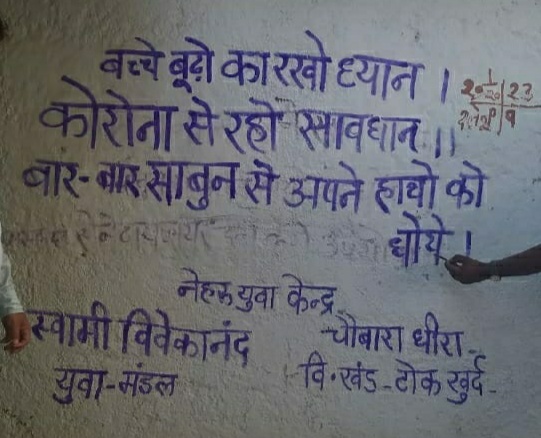 बच्चे बूढ़ो का रखो ध्यान ।
कोरोना से रहो सावधान ।।
बार-बार साबुन से अपने हाथो को
धोये ।
नेहरू युवा केन्द्र
स्वामी विवेकानंद चौबारा धीरा
युवा-मंडल वि.खंड-टोंक खुर्द-